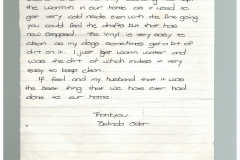 the warmth in our home as it used to
get very cold inside even with the fire going
you could feel the drafts but that has
now stopped. The vinyl is very easy to
clean as my dogs sometimes get a bit of
dirt on it. I just get warm water and
wash the dirt of which makes it very
easy to keep clean.
If feel and my husband that it was
the best thing that we have ever had
done to our home.
Thankyou
Belinda